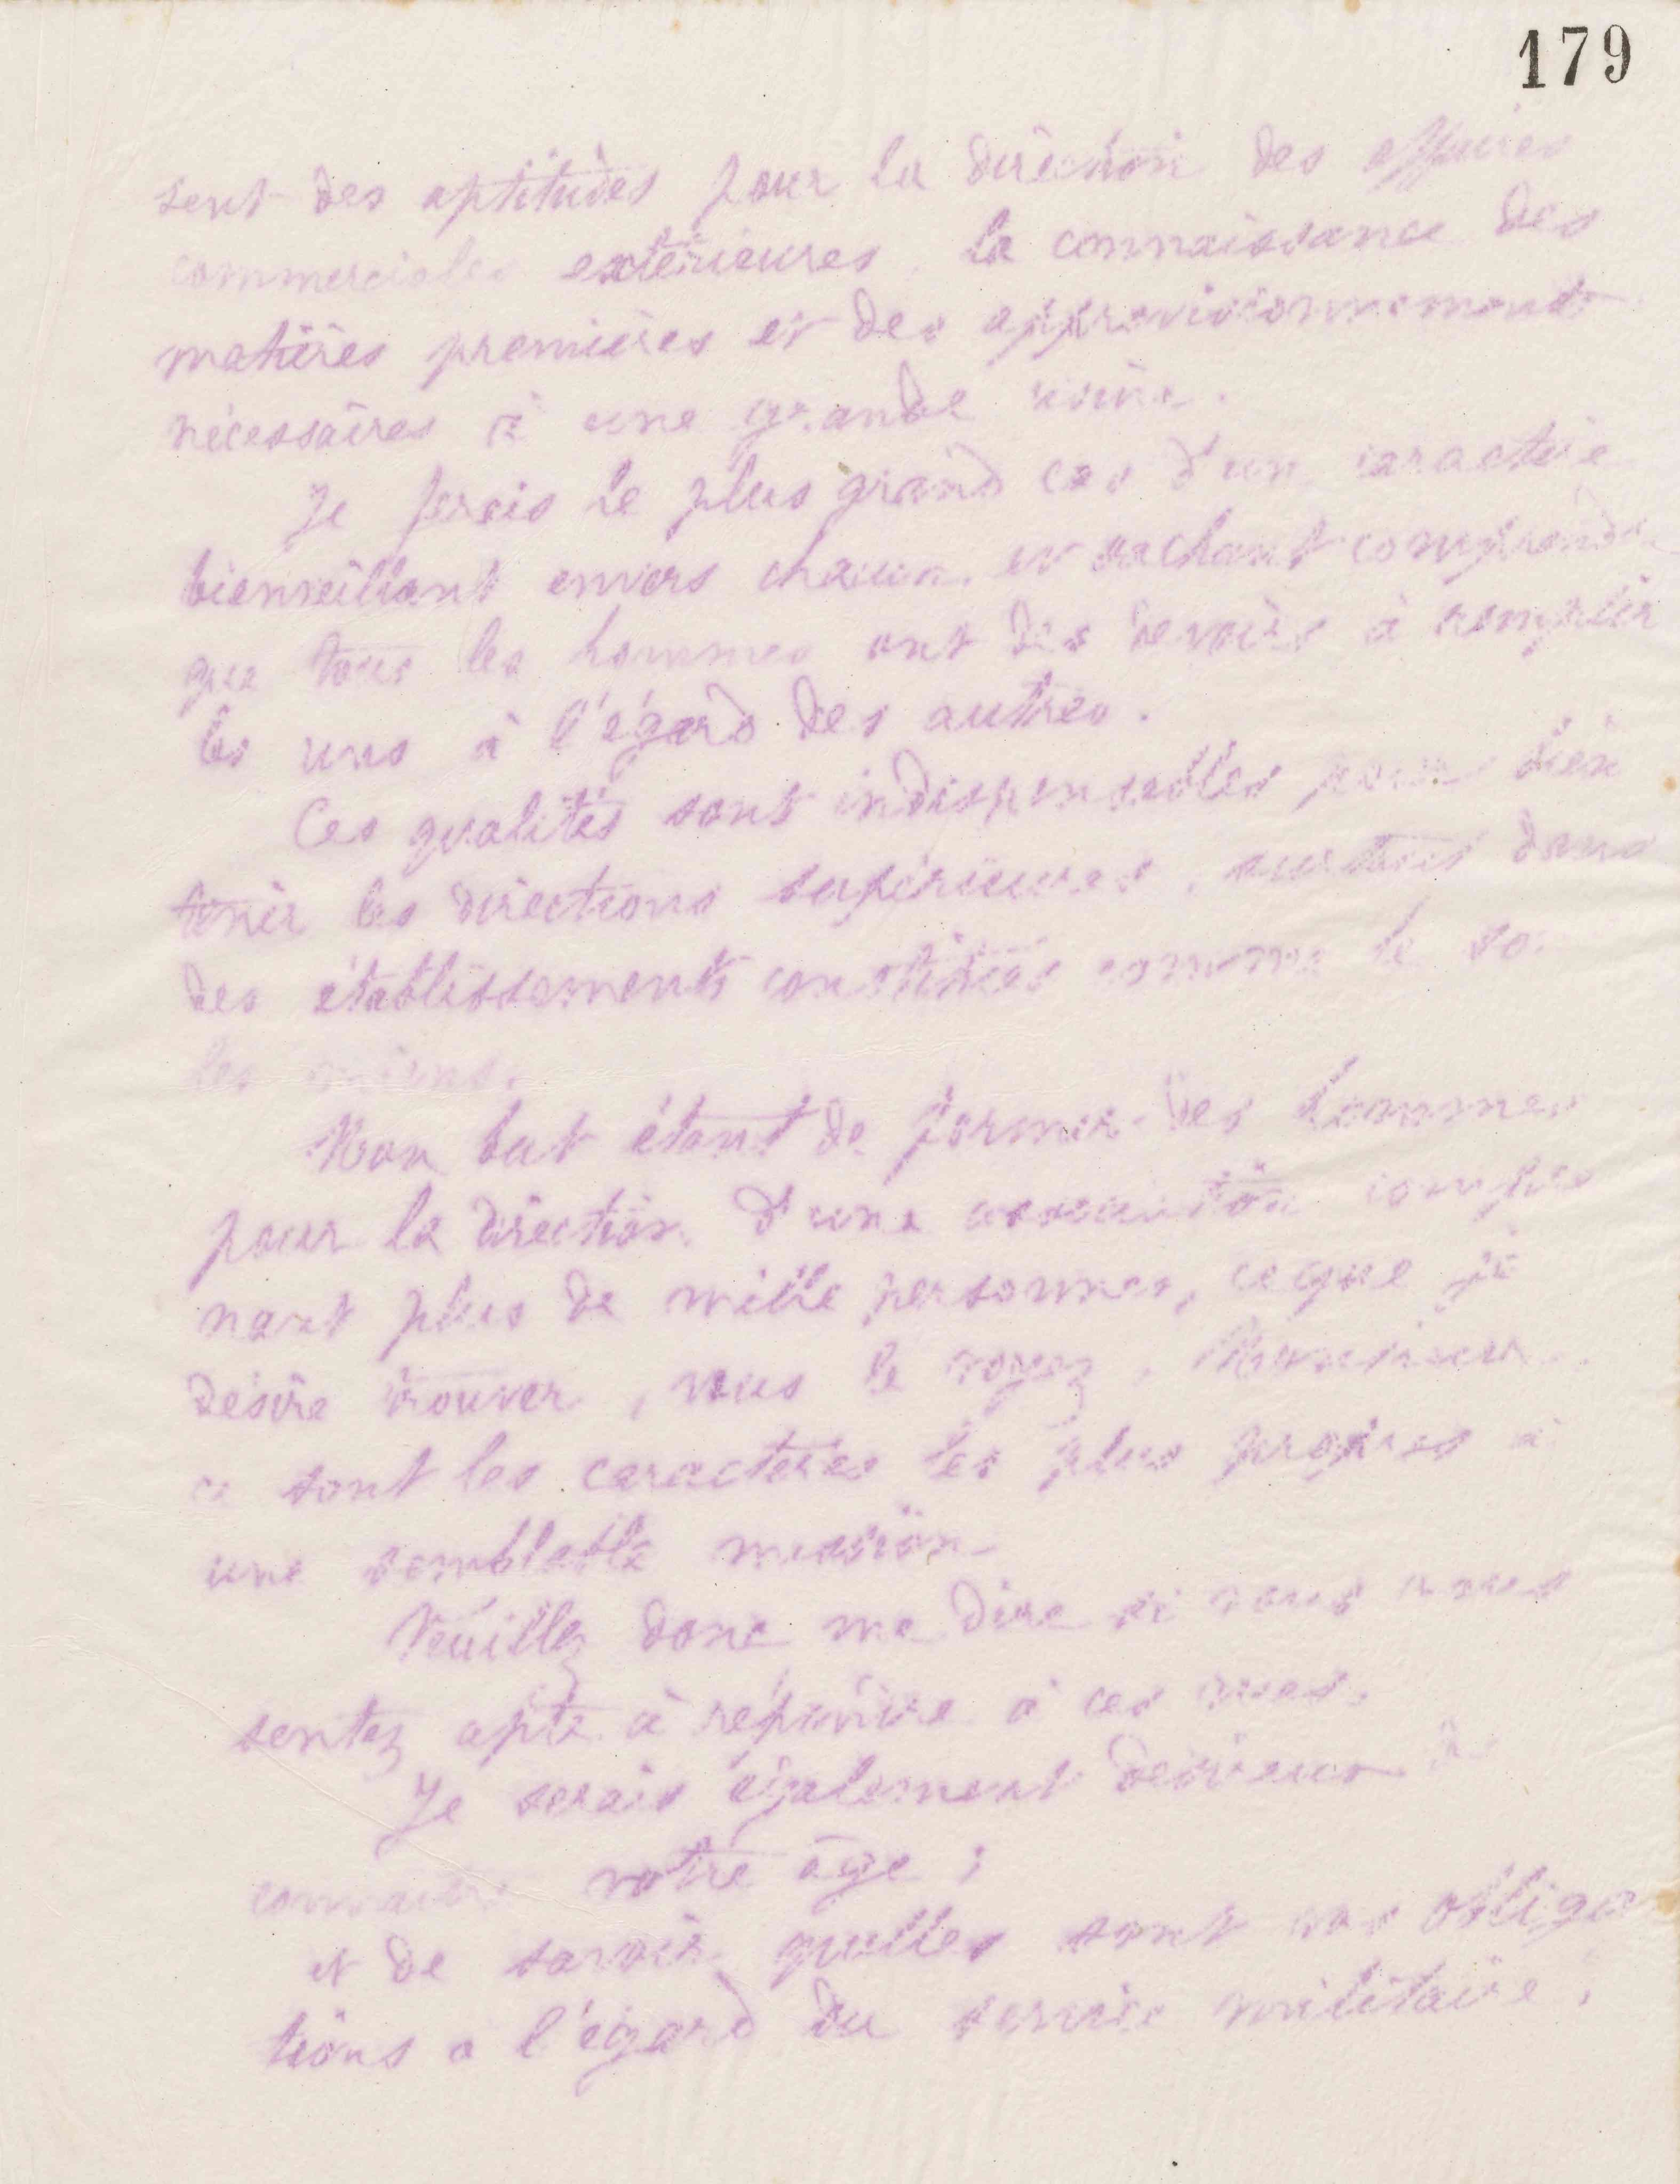 179
sent des aptitudes pour la direction des affaires
commerciales extérieures, la connaissance des
matières premières et des approvisionnements
nécessaires à une grande usine.
Je ferais le plus grand cas d'un caractère
bienveillant envers chacun et sachant comprendre
que tous les hommes ont des devoirs à remplir
les uns à l'égard des autres.
Ces qualités sont indispensables pour bien
tenir les directions supérieures, surtout dans
des établissements constitués comme le sont
les miens.
Mon but étant de former des hommes
pour la direction d'une association compre
nant plus de mille personnes, ce que je
désire trouver, vous le voyez, Monsieur
ce sont les caractères les plus propres à
une semblable mission.
Veuillez donc me dire si vous vous
sentez apte à répondre à ces vues.
Je serais également désireux de
connaître votre âge ;
et de savoir quelles sont vos obliga
tions à l'égard du service militaire ;